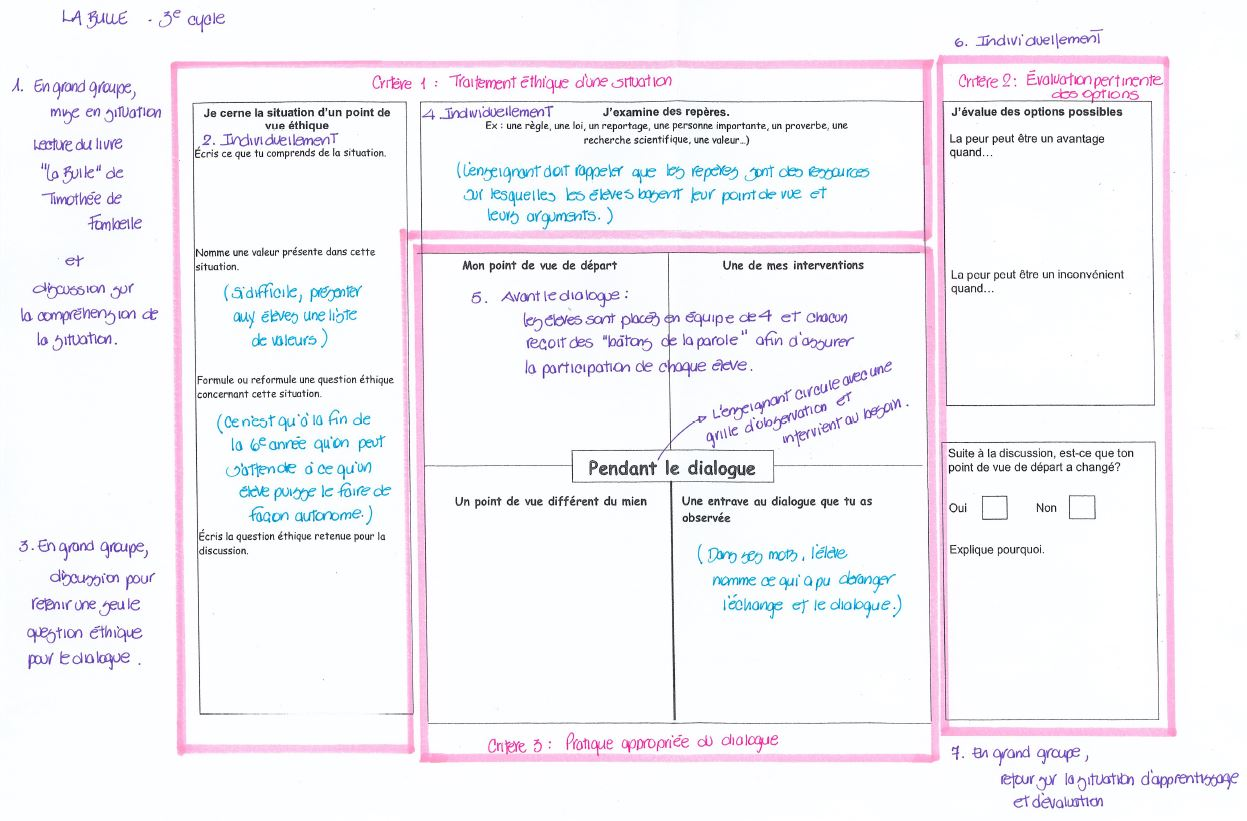 LA BULLE - 3e cycle
1. En grand groupe,
mise en situation
Lecture du livre
"La Bulle" de
Timothée de
Fombelle
et
discussion sur
la compréhension de
la situation.
3. En grand groupe,
discussion pour
retenir une seule
question éthique
pour le dialogue.
Critère 1 : Traitement éthique d'une situation
Je cerne la situation d'un point de
vue éthique
2. Individuellement
Écris ce que tu comprends de la situation.
Nomme une valeur présente dans cette
situation.
(Si difficile, présenter
aux élèves une liste
de valeurs)
Formule ou reformule une question éthique
concernant cette situation.
(Ce n'est qu'à la fin de
la 6e année qu'on peut
s'attendre à ce qu'un
élève puisse le faire de
façon autonome.)
Écris la question éthique retenue pour la
discussion.
4. Individuellement
J'examine des repères.
Ex : une règle, une loi, un reportage, une personne importante, un proverbe, une
recherche scientifique, une valeur…)
(L'enseignant doit rappeler que les repères sont des ressources
sur lesquelles les élèves basent leur point de vue et
leurs arguments.)
Mon point de vue de départ
Une de mes interventions
5. Avant le dialogue :
les élèves sont placés en équipe de 4 et chacun
reçoit des "bâtons de la parole" afin d'assurer
la participation de chaque élève.
L'enseignant circule avec une
grille d'observation et
intervient au besoin.
Pendant le dialogue
Un point de vue différent du mien
Une entrave au dialogue que tu as
observée
(Dans ses mots, l'élève
nomme ce qui a pu déranger
l'échange et le dialogue.)
Critère 3 : Pratique appropriée du dialogue
6. Individuellement
Critère 2 : Évaluation pertinente
des options
J'évalue des options possibles
La peur peut être un avantage
quand…
La peur peut être un inconvénient
quand…
Suite à la discussion, est-ce que ton
point de vue de départ a changé?
Oui Non
Explique pourquoi.
7. En grand groupe,
retour sur la situation d'apprentissage
et d'évaluation